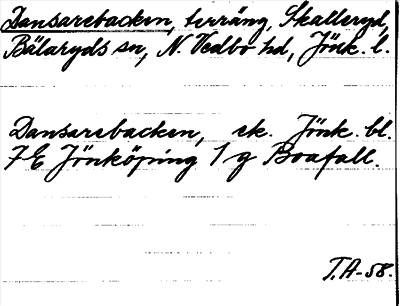 Dansarebacken, terräng, Skalleryd,
Bälaryds sn, N. Vedbo hd, Jönk. l.
Dansarebacken, ek. Jönk. bl.
7E Jönköping 1 g Boafall.
T.A-58.